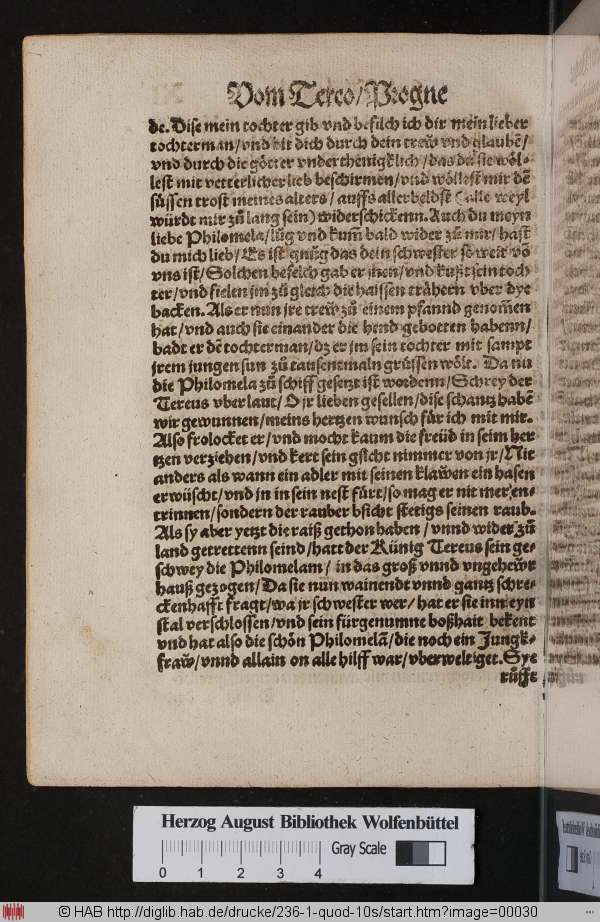 Vom Tereo/Progne
de. Dise mein tochter gib vnd befilch ich dir mein lieber
tochterman/vnd bit dich durch dein trew̃ vnd glaubē/
vnd durch die götter vnderthenigklich/das du sie wöl-
lest mit vetterlicher lieb beschirmen/vnd wöllest mir dē
süssen trost meines alters/auffs allerbeldst (alle weyl
würdt mir zů lang sein) widerschickenn. Auch du meyn
liebe Philomela/lůg vnd kum̄ bald wider zů mir/hast
du mich lieb/Es ist gnůg das dein schwester so weit vō
vns ist/Solchen befelch gab er jnen/vnd kußt sein toch
ter/vnd fielen jm zů gleich die haissen trähern vber dye
backen. Als er nun jre trew̃ zů einem pfannd genom̄en
hat/vnd auch sie einander die hend gebotten habenn/
badt er dē tochterman/dz er jm sein tochter mit sampt
jrem jungen sun zů tausentmaln grüssen wölt. Da nu
die Philomela zů schiff gesetzt ist wordenn/Schrey der
Tereus vberlaut/O jr lieben gesellen/dise schantz habē
wir gewunnen/meins hertzen wunsch für ich mit mir.
Also frolocket er/vnd mocht kaum die freüd in seim her
tzen verziehen/vnd kert sein gsicht nimmer von jr/Nit
anders als wann ein adler mit seinen klaw̃en ein hasen
erwüscht/vnd in in sein nest fürt/so mag er nit mer en-
trinnen/sondern der rauber bsicht stetigs seinen raub.
Als sy aber yetzt die raiß gethon haben/vnnd wider zů
land getrettenn seind/hatt der Künig Tereus sein ge-
schwey die Philomelam/in das groß vnnd vngehew̃r
hauß gezogen/Da sie nun wainendt vnnd gantz schre-
ckenhafft fragt/wa jr schwester wer/hat er sie inn eyn
stal verschlossen/vnd sein fürgenumne boßhait bekent
vnd hat also die schön Philomelā/die noch ein Jungk-
fraw̃/vnnd allain on alle hilff war/vberweltiget. Sye
růfft
Herzog August Bibliothek Wolfenbüttel
0 1 2 3 4 Gray Scale
© HAB http://diglib.hab.de/drucke/236-1-quod-10s/start.htm?image=00030